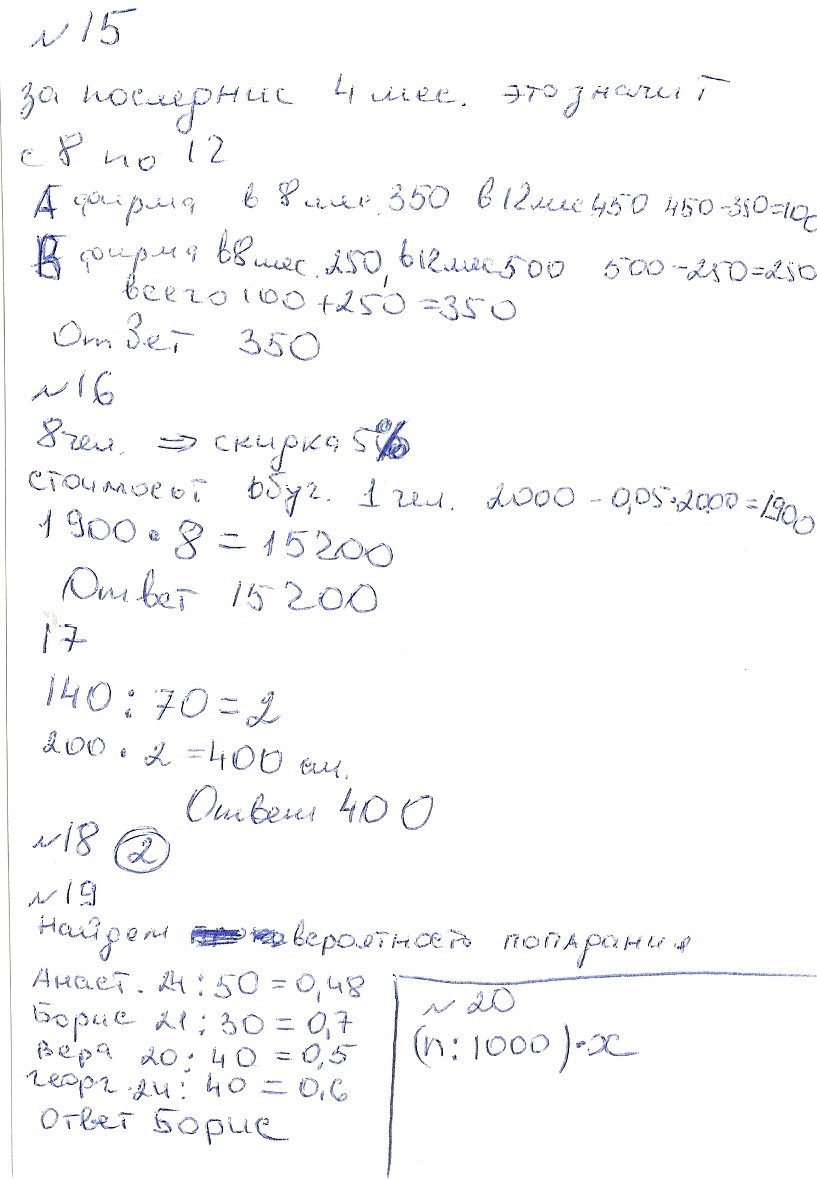 №15
за последние 4 мес. это значит
с 8 по 12
А фирма в 8 мес. 350 в 12 мес 450 450-350=100
В фирма в 8 мес. 250, в 12 мес 500 500-250=250
всего 100+250=350
Ответ 350
№16
8 чел. ⇒ скидка 5%
стоимост обуч. 1 чел. 2000-0,05·2000=1900
1900·8=15200
Ответ 15200
17
140:70=2
200·2=400 см.
Ответ 400
№18 2
№19
Найдем вероятность попадания
Анаст. 24:50=0,48
Борис 21:30=0,7
Вера 20:40=0,5
Георг. 24:40=0,6
Ответ Борис
№20
(n:1000)·x